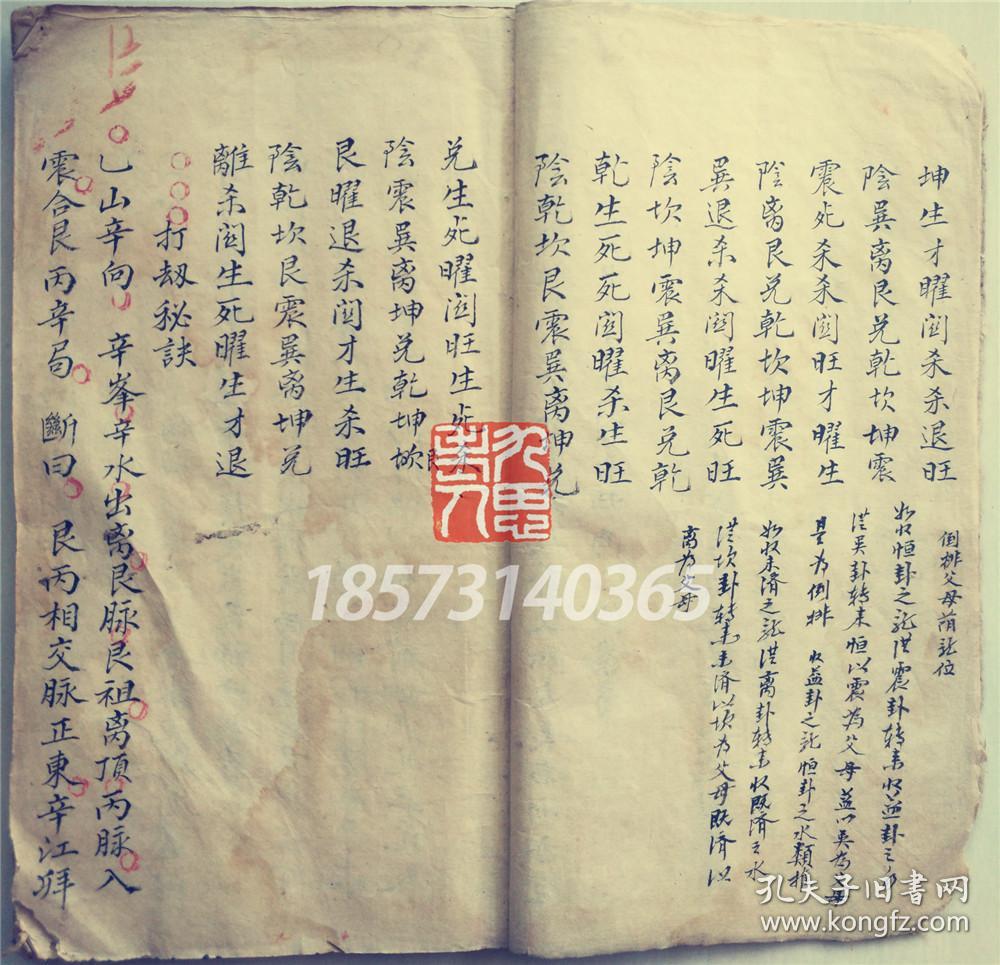 坤生才曜関杀杀退旺
陰巽离艮兑乾坎坤震
震死杀杀関旺才曜生
陰离艮兑乾坎坤震巽
巽退杀杀関曜生死旺
陰坎坤震巽离艮兑乾
乾生死死関曜杀生旺
陰乾坎艮震巽离坤兑
倒排父母蔭龍位
如收恒卦之龍從震卦轉来收益卦之水
從巽卦轉来恒以震為父母益以巽為父母
是為倒排 收益卦之龍恒卦之水類推
如收未済之龍從离卦轉来收既済之水
從坎卦轉来未済以坎為父母既済以
离為父母
兑生死曜関旺生死杀
陰震巽离坤兑乾坤坎
艮曜退杀関才生杀旺
陰乾坎艮震巽离坤兑
離杀関生死曜生才退
打刼秘訣
乙山辛向 辛峯辛水出离艮脉艮祖离頂丙脉入
震合艮丙辛局 斷曰 艮丙相交脉正東辛江拜
18573140365
孔夫子旧书网
www.kongfz.com